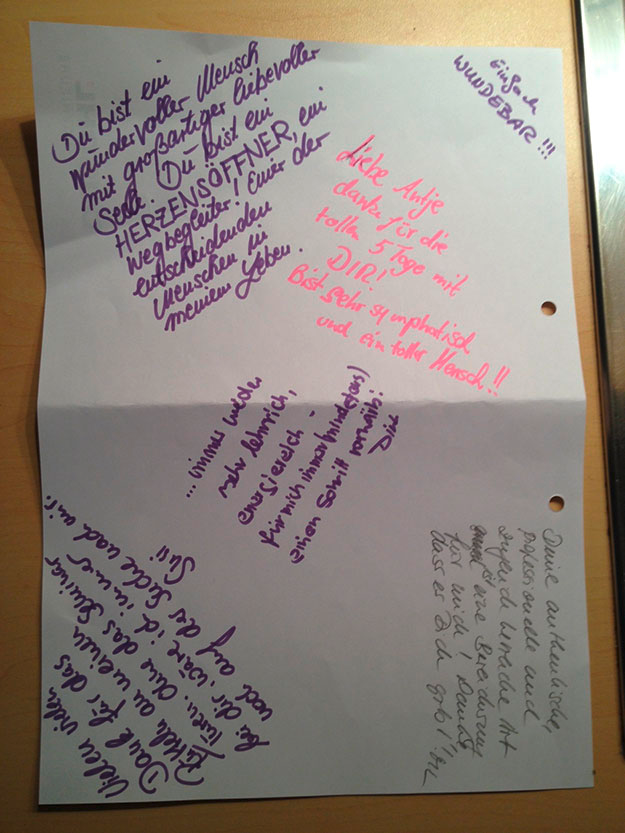 Du bist ein
wundervoller Mensch
mit großartiger liebevoller
Seele. Du bist ein
HERZENSÖFFNER, ein
Wegbegleiter! Einer der
entscheidenden
Menschen in
meinem Leben.
Einfach
WUNDEBAR!!!
Liebe Antje
danke für die
tollen 5 Tage mit
DIR!
Bist sehr symphatisch
und ein toller Mensch!!
...immer wieder
sehr lehrreich,
energiereich -
für mich immer (mindestens)
einen Schritt vorwärts!
Deine authentische,
professionelle und
Art
ist eine Bereicherung
für mich! Danke,
dass es Dich gibt!
Vielen vielen
Dank für das
Rütteln an meinen
Türen. Ohne das Seminar
bei dir wäre ich immer
noch auf der Suche nach mir.
Susi